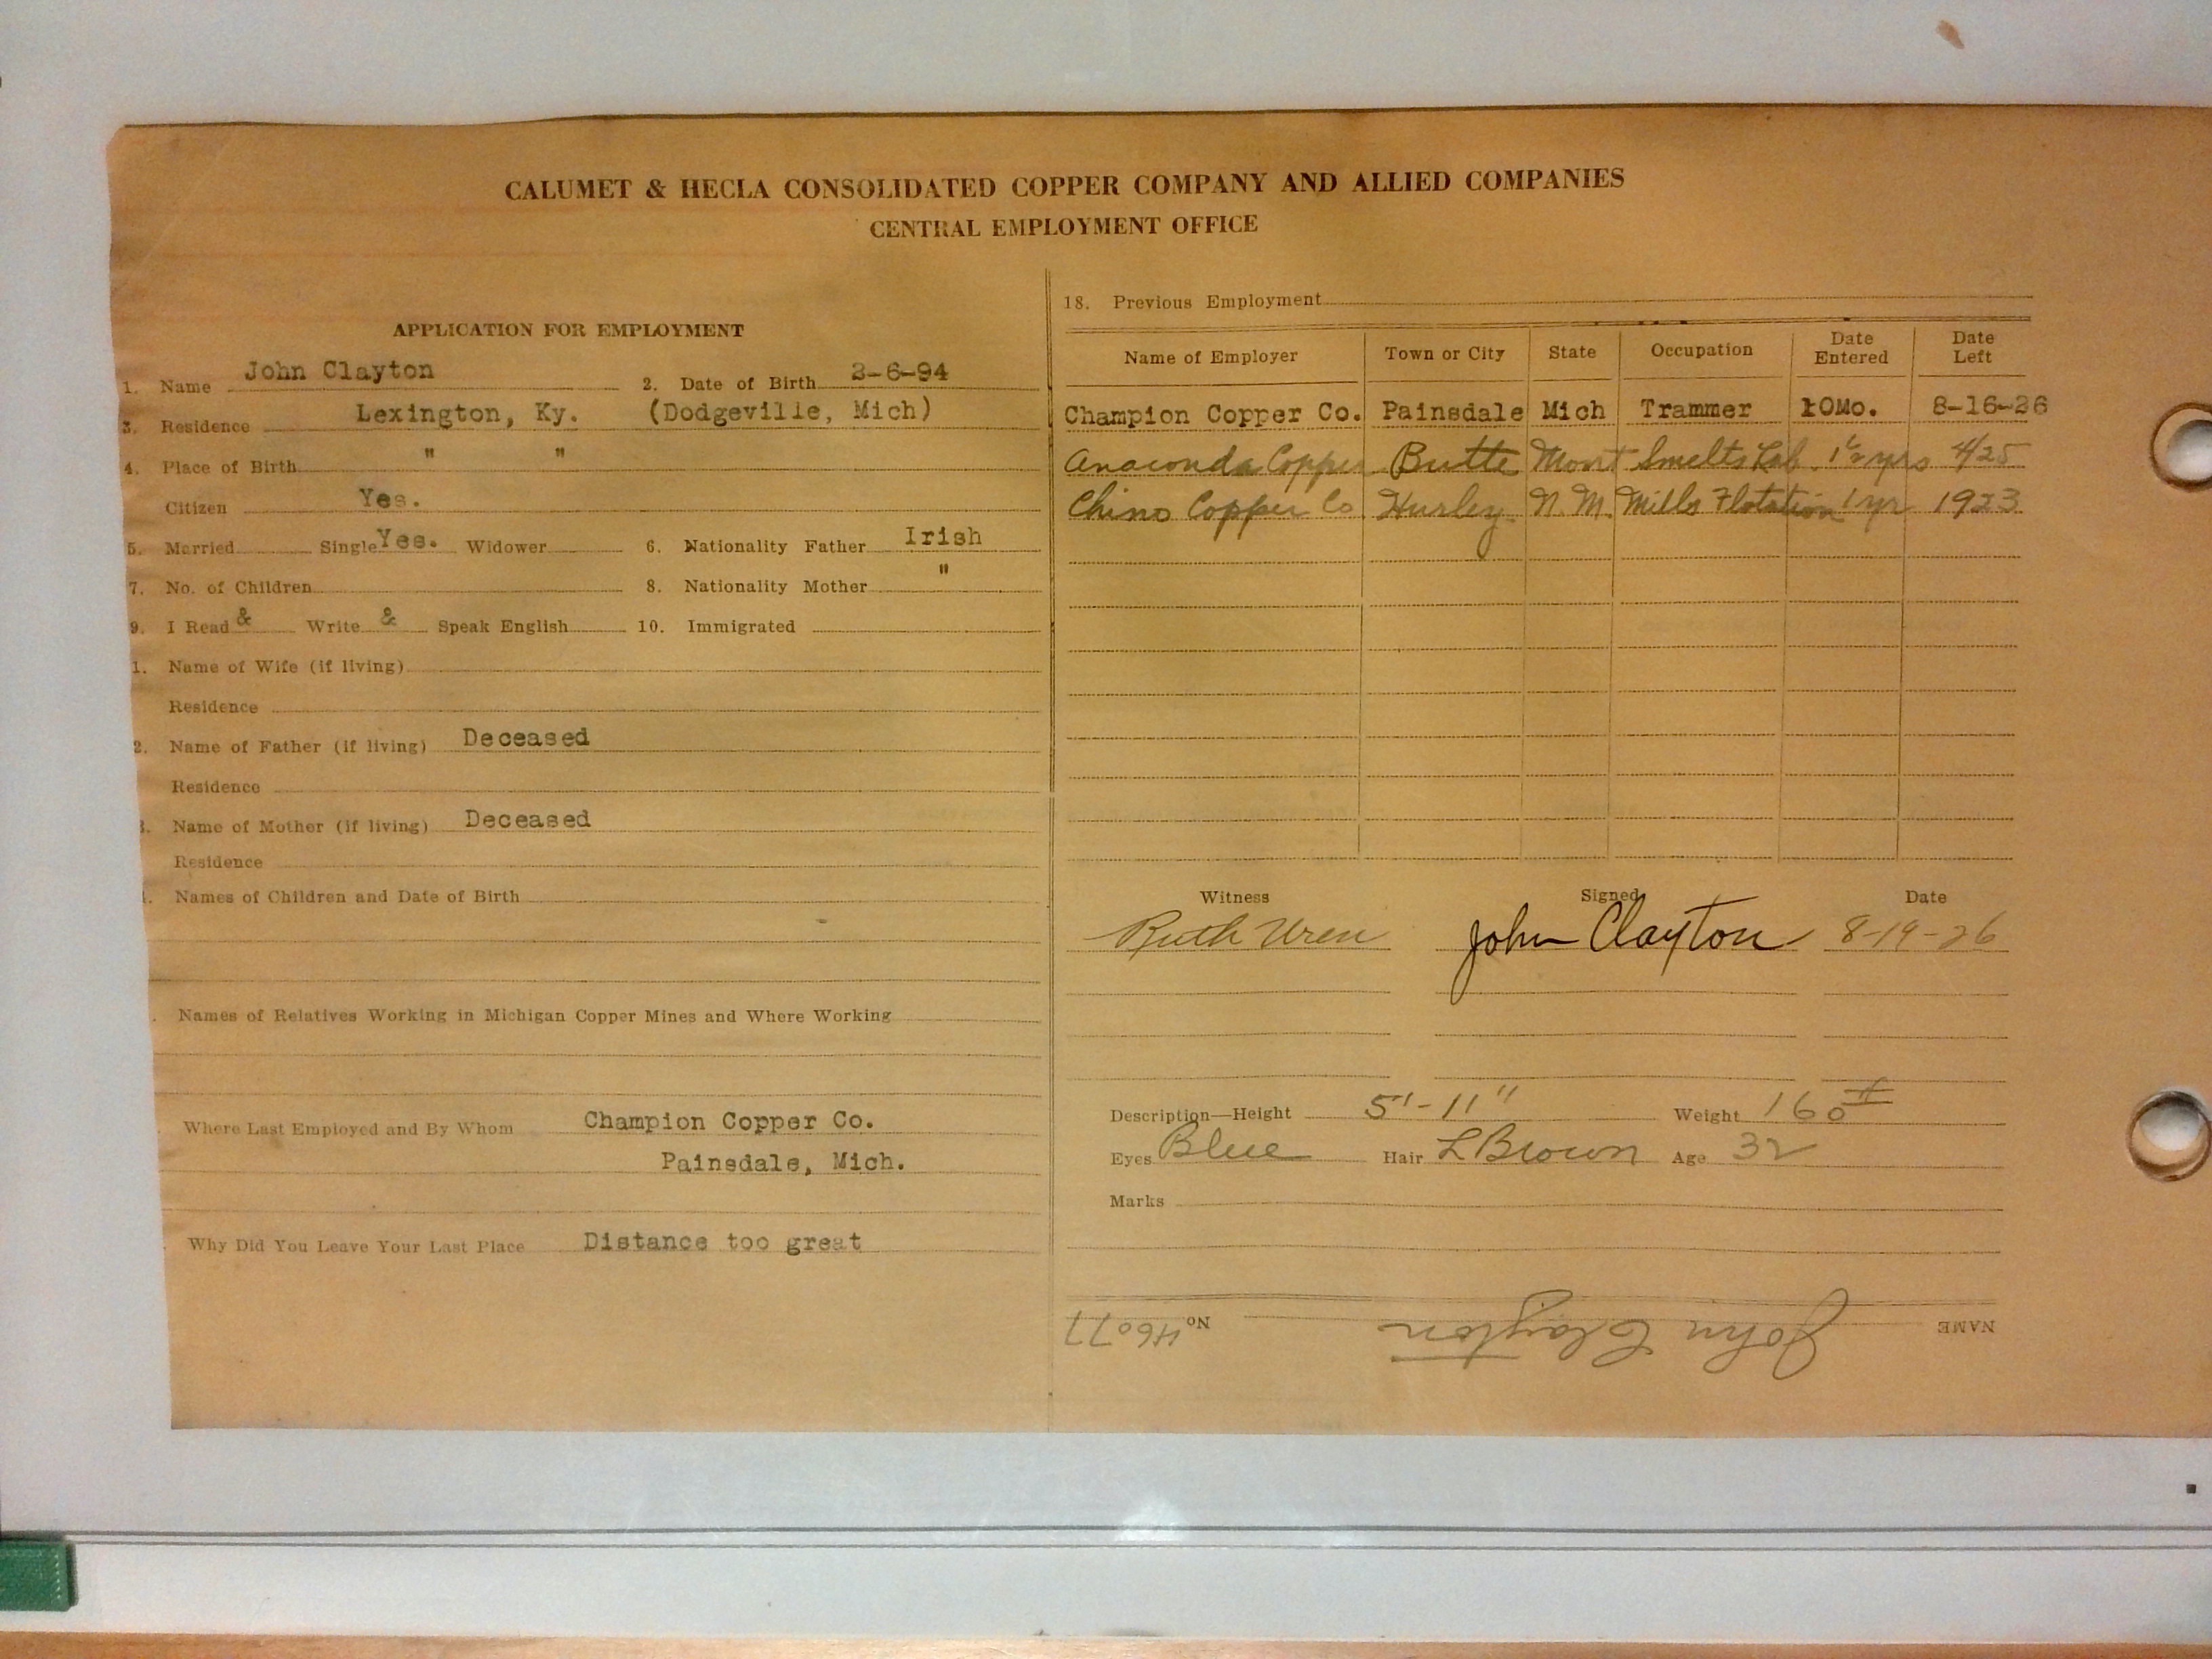 CALUMET & HECLA CONSOLIDATED COPPER COMPANY AND ALLIED COMPANIES
CENTRAL EMPLOYMENT OFFICE
APPLICATION FOR EMPLOYMENT
1. Name John Clayton 2. Date of Birth 2-6-94
3. Residence Lexington, Ky. (Dodgeville, Mich)
4. Place of Birth " "
Citizen Yes.
5. Married Single Yes. Widower 6. Nationality Father Irish
7. No. of Children 8. Nationality Mother "
9. I Read & Write & Speak English 10. Immigrated
1. Name of Wife (if living)
Residence
2. Name of Father (if living) Deceased
Residence
3. Name of Mother (if living) Deceased
Residence
Names of Children and Date of Birth
Names of Relatives Working in Michigan Copper Mines and Where Working
Where Last Employed and By Whom Champion Copper Co.
Painsdale, Mich.
Why Did You Leave Your Last Place Distance too great
18. Previous Employment
Name of Employer Town or City State Occupation Date Entered Date Left
Champion Copper Co. Painsdale Mich Trammer 10Mo. 8-16-26
Anaconda Copper Butte Mont Smelts Lab yrs 4/25
Chino Copper Co Hurley N. M. Mills Flotation 1 yr 1923
Witness Signed Date
Ruth Uren John Clayton 8-19-26
Description—Height 5'-11" Weight 160#
Eyes Blue Hair L Brown Age 32
Marks
NAME John Clayton No. 46077